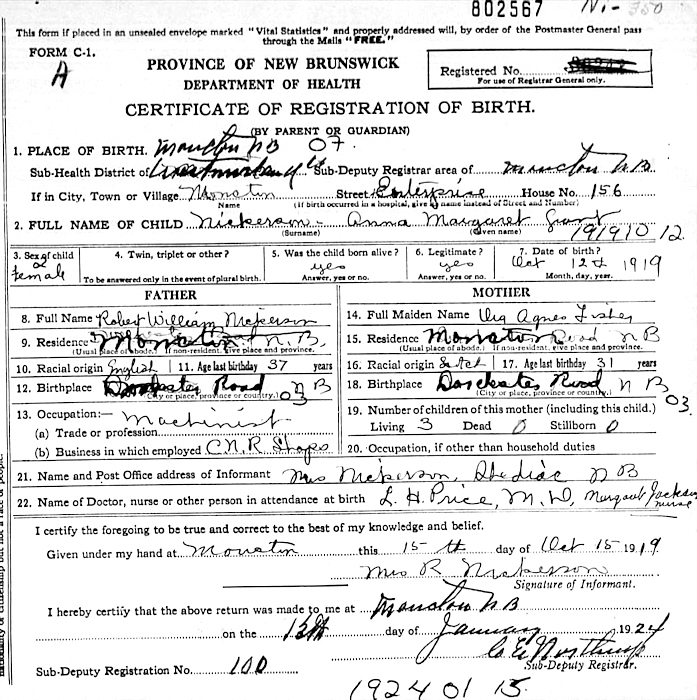 802567 N.-
This form if placed in an unsealed envelope marked "Vital Statistics" and properly addressed will, by order of the Postmaster General pass
through the Mails "FREE."
FORM C-1.
A
PROVINCE OF NEW BRUNSWICK
DEPARTMENT OF HEALTH
Registered No.
For use of Registrar General only.
CERTIFICATE OF REGISTRATION OF BIRTH.
(BY PARENT OR GUARDIAN)
1. PLACE OF BIRTH. Moncton NB 07.
Sub-Health District of Sub-Deputy Registrar area of Moncton N.B.
If in City, Town or Village Moncton Street Enterprise House No. 156
Name (If birth occurred in a hospital, give its name instead of Street and Number)
2. FULL NAME OF CHILD Nickerson - Anna Margaret Grant
(Surname) (Given name)
1919 10 12
3. Sex of child 4. Twin, triplet or other? 5. Was the child born alive? 6. Legitimate? 7. Date of birth?
2 female yes yes Oct 12th 1919
To be answered only in the event of plural birth. Answer, yes or no. Answer, yes or no. Month, day, year.
FATHER
8. Full Name Robert William Nickerson
9. Residence Moncton N.B.
(Usual place of abode.) If non-resident, give place and province.
10. Racial origin English 11. Age last birthday 37 years
12. Birthplace Dorchester Road N B
(City or place, province or country.) 03
13. Occupation:— Machinist
(a) Trade or profession
(b) Business in which employed C.N.R Shops
MOTHER
14. Full Maiden Name Agnes Fisher
15. Residence Moncton Road N B
(Usual place of abode.) If non-resident, give place and province.
16. Racial origin Scotch 17. Age last birthday 31 years
18. Birthplace Dorchester Road N B
(City or place, province or country.) 03.
19. Number of children of this mother (including this child.)
Living 3 Dead 0 Stillborn 0
20. Occupation, if other than household duties
21. Name and Post Office address of Informant Mrs Nickerson, Shediac N B
22. Name of Doctor, nurse or other person in attendance at birth L. H. Price, M.D, Margaret Jackson nurse
I certify the foregoing to be true and correct to the best of my knowledge and belief.
Given under my hand at Moncton this 15 th day of Oct 15 1919
Mrs R Nickerson
Signature of Informant.
I hereby certify that the above return was made to me at Moncton N B
on the 15th day of January 1924
C E Northrup
Sub-Deputy Registrar.
Sub-Deputy Registration No. 100
1924 01 15